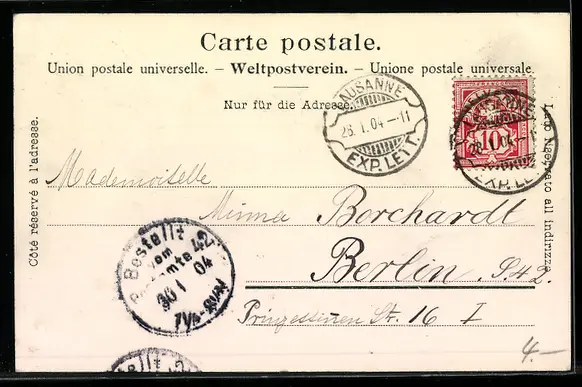 Carte postale.
Union postale universelle. – Weltpostverein. – Unione postale universale.
Nur für die Adresse.
LAUSANNE
26. I. 04 – 11
EXP. LETT.
LAUSANNE
26. I. 04 –
EXP. LETT.
10
Côté réservé à l'adresse.
Lato riservato all indirizzo.
Mademoiselle
Minna Borchardt
Berlin S. 42.
Prinzessinen Str. 16 I
Bestellt
vom
Postamte 42
30 1 04
7½-8¼V
4.–